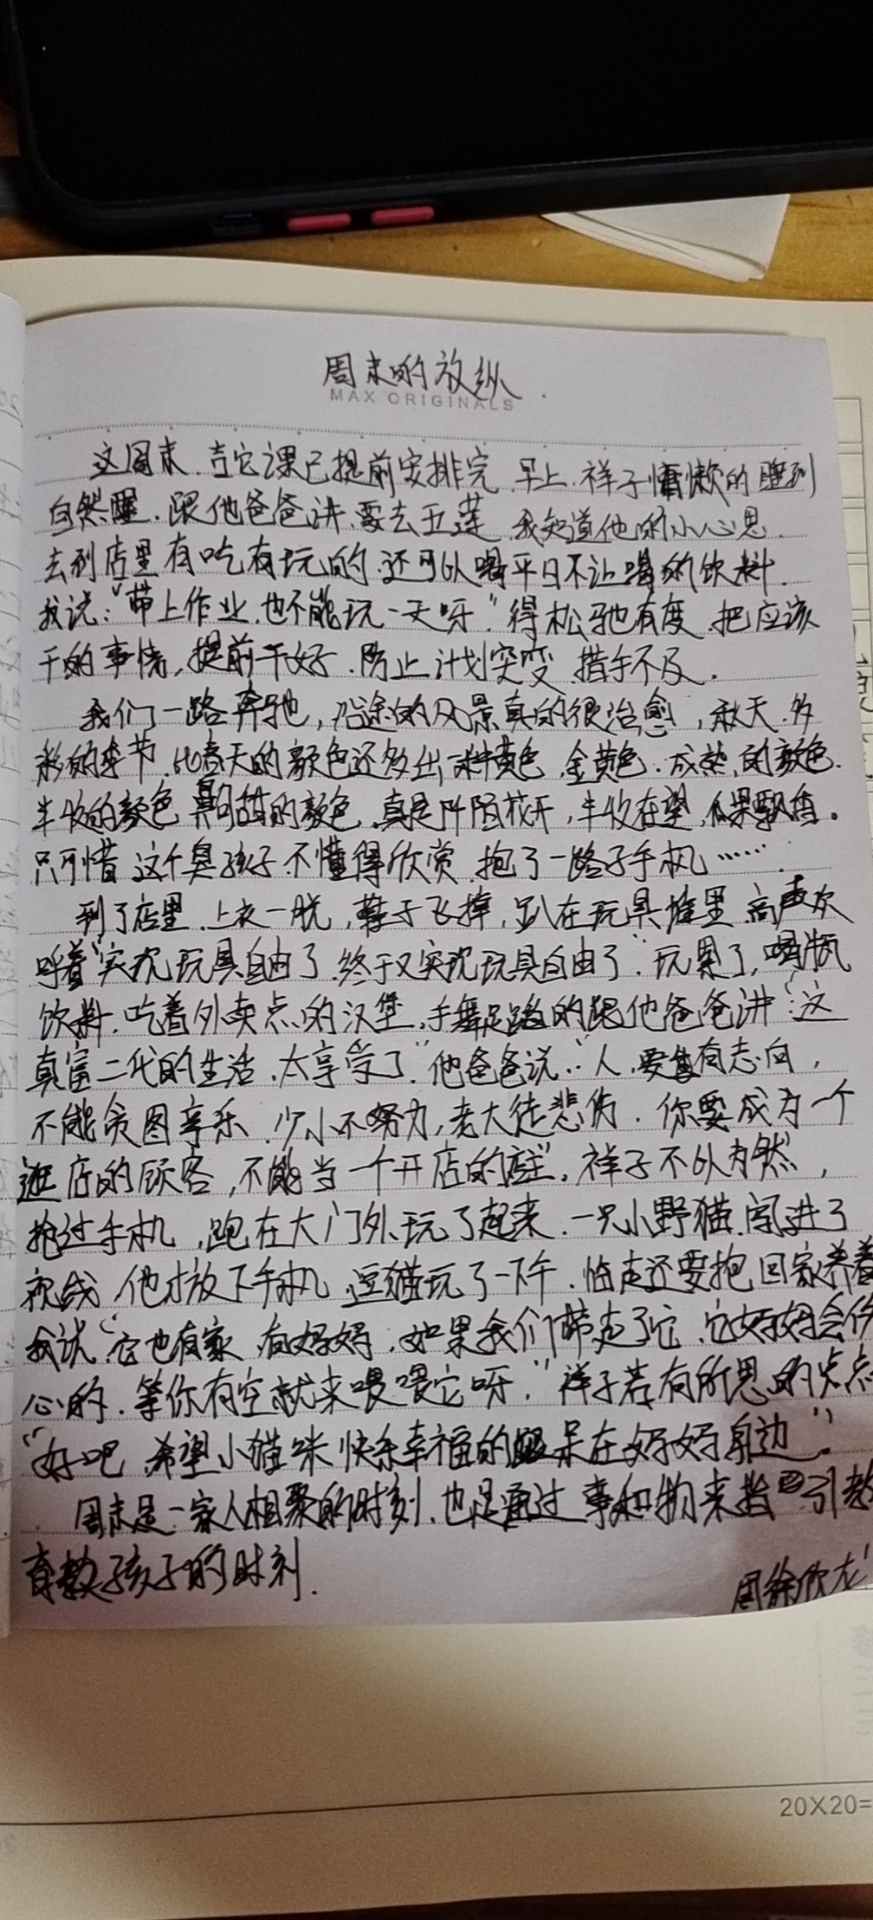 周末的放纵
MAX ORIGINALS
这周末.其它课已提前安排完.早上.祥子慵懒的睡到
自然醒.跟他爸爸讲.要去五莲.我知道他的小心思.
去到店里有吃有玩的.还可以喝平日不让喝的饮料.
我说:"带上作业.也不能玩一天呀."得松驰有度.把应该
干的事情,提前干好.防止计划突变.措手不及.
我们一路奔驰,沿途的风景真的很治愈,秋天.多
彩的季节.比春天的颜色还多出一种黄色.金黄色.成熟的颜色.
丰收的颜色.香甜的颜色.真是阡陌花开,丰收在望,瓜果飘香。
只可惜.这个臭孩子.不懂得欣赏.抱了一路子手机……
到了店里.上衣一脱,鞋子飞掉,趴在玩具堆里.高声欢
呼着"实现玩具自由了.终于又实现玩具自由了".玩累了,喝瓶
饮料.吃着外卖点的汉堡.手舞足蹈的跟他爸爸讲:"这
真富二代的生活.太享受了"他爸爸说:"人,要有志向,
不能贪图享乐.少小不努力,老大徒悲伤.你要成为一个
逛店的顾客,不能当一个开店的店主".祥子不以为然,
抢过手机,跑在大门外玩了起来.一只小野猫.闯进了
视线.他才放下手机.逗猫玩了一下午.临走还要抱回家养着
我说"它也有家.有妈妈.如果我们带走了它.它妈妈会伤
心的.等你有空就来喂喂它呀."祥子若有所思的点点
"好吧.希望小猫咪快乐幸福的呆在妈妈身边".
周末是一家人相聚的时刻.也是通过事和物来指引教
育孩子的时刻.